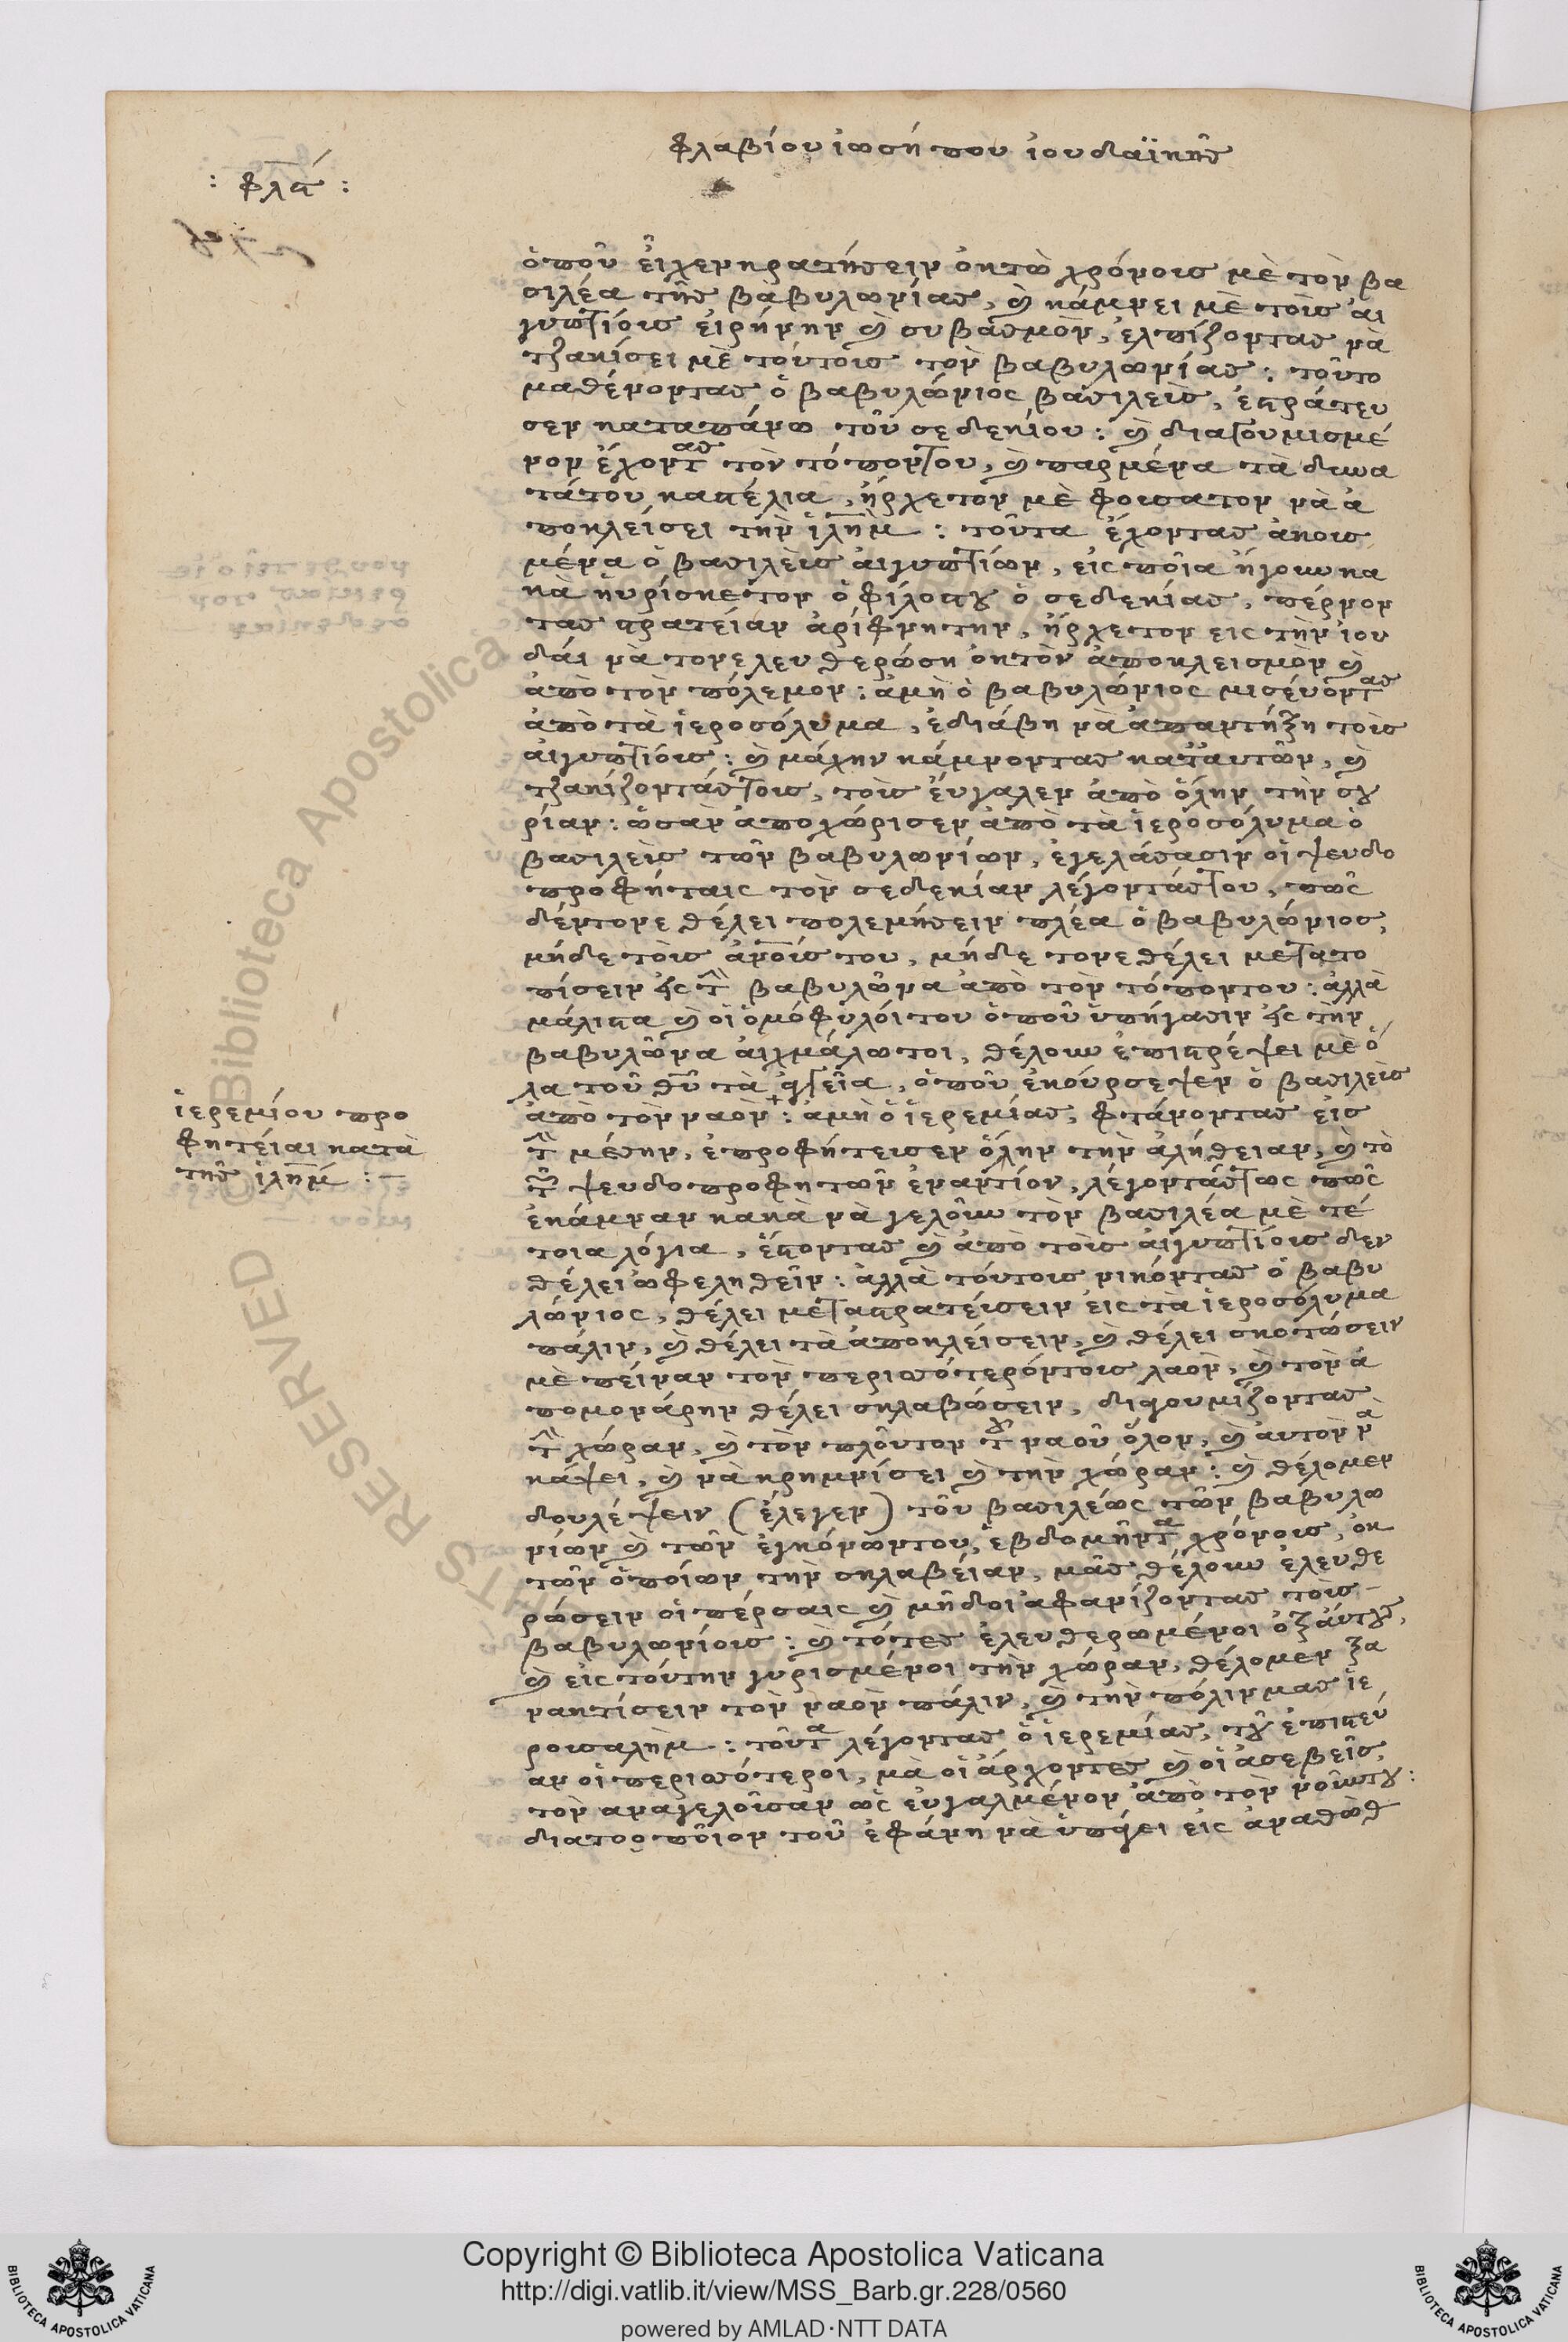 φλαβίου ἰωσήπου ἰουδαϊκῆς
: φλα :
ὁποῦ εἶχεν κρατήσειν ὀκτὼ χρόνους μὲ τὸν βα
σιλέα τῆς βαβυλωνίας, καὶ κάμνει μὲ τοὺς αἰ
γυπτίους εἰρήνην καὶ συβασμὸν, ἐλπίζοντας νὰ
τζακίσει μὲ τούτους τὸν βαβυλωνίας: τοῦτο
μαθένοντας ὁ βαβυλώνιος βασιλεὺς, ἐστράτευ
σεν καταπάνω τοῦ σεδεκίου: καὶ διαγουμισμέ
νον ἔχοντας τὸν τόποντου, καὶ παρμένα τὰ δυνα
τάτου καστέλια, ἤρχετον μὲ φουσάτον νὰ ἀ
ποκλείσει τὴν ἱλημ: τοῦτα ἔχοντας ἀκουσ
μένα ὁ βασιλεὺς αἰγυπτίων, εἰς ποῖα ἤγουν κα
κὰ ηὑρίσκετον ὁ φίλοςτου ὁ σεδεκίας, πέρνον
τας στρατείαν ἀρίφνητην, ἤρχετον εἰς τὴν ἰου
δαί νὰ τονελευθερώση ὀκτὸν ἀποκλεισμὸν καὶ
ἀπὸ τὸν πόλεμον: ἀμὴ ὁ βαβυλώνιος μισεύοντας
ἀπὸ τὰ ἱεροσόλυμα, ἐδιάβη νὰ ἀπαντήξη τοὺς
αἰγυπτίους: καὶ μάχην κάμνοντας κατ' αυτῶν, καὶ
τζακίζοντάςτους, τοὺς ἔυγαλεν ἀπὸ ὅλην τὴν συ
ρίαν: ὡσὰν ἀποχώρισεν ἀπὸ τὰ ἱεροσόλυμα ὁ
βασιλεὺς τῶν βαβυλωνίων, ἐγελάσασιν οἱ ψευδο
προφήταις τὸν σεδεκίαν λέγοντάςτου, πῶς
δέντονε θέλει πολεμήσειν πλέα ὁ βαβυλώνιος,
μήδε τοὺς ἀνοὺς του, μήδε τονε θέλει μετατο
πίσειν εἰς τὴν βαβυλῶνα ἀπὸ τὸν τόποντου: ἀλλὰ
μάλιστα καὶ οἱ ὁμόφυλόι του ὁποῦ ὑπήγασιν εἰς τὴν
βαβυλῶνα αἰχμάλωτοι, θέλουν ἐπιστρέψει μὲ ὅ
λα τοῦ θῦ τὰ ἀγγεῖα, ὁποῦ ἐκούρσεψεν ὁ βασιλεὺς
ἀπὸ τὸν ναὸν: ἀμὴ ὁ ἱερεμίας, φτάνοντας εἰς
τὴν μέσην, ἐπροφήτευσεν ὅλην τὴν ἀλήθειαν, καὶ τὸ
τῶν ψευδοπροφητῶν ἐναντίον, λέγοντάςτως πῶς
ἐκάμναν κακὰ νὰ γελοῦν τὸν βασιλέα μὲ τέ
τοια λόγια, ἔστοντας καὶ ἀπὸ τοὺς αἰγυπτίους δεν
θέλει ὠφεληθεῖν: ἀλλὰ τούτους νικόντας ὁ βαβυ
λώνιος, θέλει μεταστρατεύσειν εἰς τὰ ἱεροσόλυμα
πάλιν, καὶ θέλει τὰ ἀποκλείσειν, καὶ θέλει σκοτώσειν
μὲ πείναν τὸν περισσότερόντους λαὸν, καὶ τὸν ἀ
πομονάρην θέλει σκλαβώσειν, διαγουμίζοντας
τὴν χώραν, καὶ τὸν πλοῦτον τοῦ ναοῦ ὅλον, καὶ αὐτὸν νὰ
κάψει, καὶ νὰ κρημνίσει καὶ τὴν χώραν: καὶ θέλομεν
δουλέψειν (ἔλεγεν) τοῦ βασιλέως τῶν βαβυλω
νίων καὶ τῶν ἐγκόνωντου, ἑβδομῆντα χρόνους, ὀκ
τῶν ὁποίων τὴν σκλαβείαν, μᾶς θέλουν ἐλευθε
ρώσειν οἱ πέρσαις καὶ μῆδοι ἀφανίζοντας τοὺς
βαβυλωνίους: καὶ τότες ἐλευθερωμένοι ὀξάυτους,
καὶ εἰς τούτην γυρισμένοι τὴν χώραν, θέλομεν ξα
νακτίσειν τὸν ναὸν πάλιν, καὶ τὴν πόλιν μας ἱε
ρουσαλὴμ: τοῦτα λέγοντας ὁ ἱερεμίας, τοῦ ἐπιστεύ
αν οἱ περισσότεροι, μὰ οἱ ἄρχοντες καὶ οἱ ἀσεβεῖς,
τὸν αναγελοῦσαν ὡς ἐυγαλμένον ἀπὸ τὸν νοῦντου:
διατοοποῖον τοῦ ἐφάνη νὰ ὑπάγει εἰς ἀναθὼθ
ἱερεμίου προ
φητείαι κατὰ
τῆς ἱλημ: —
Copyright © Biblioteca Apostolica Vaticana
http://digi.vatlib.it/view/MSS_Barb.gr.228/0560
powered by AMLAD·NTT DATA
BIBLIOTECA APOSTOLICA VATICANA
BIBLIOTECA APOSTOLICA VATICANA